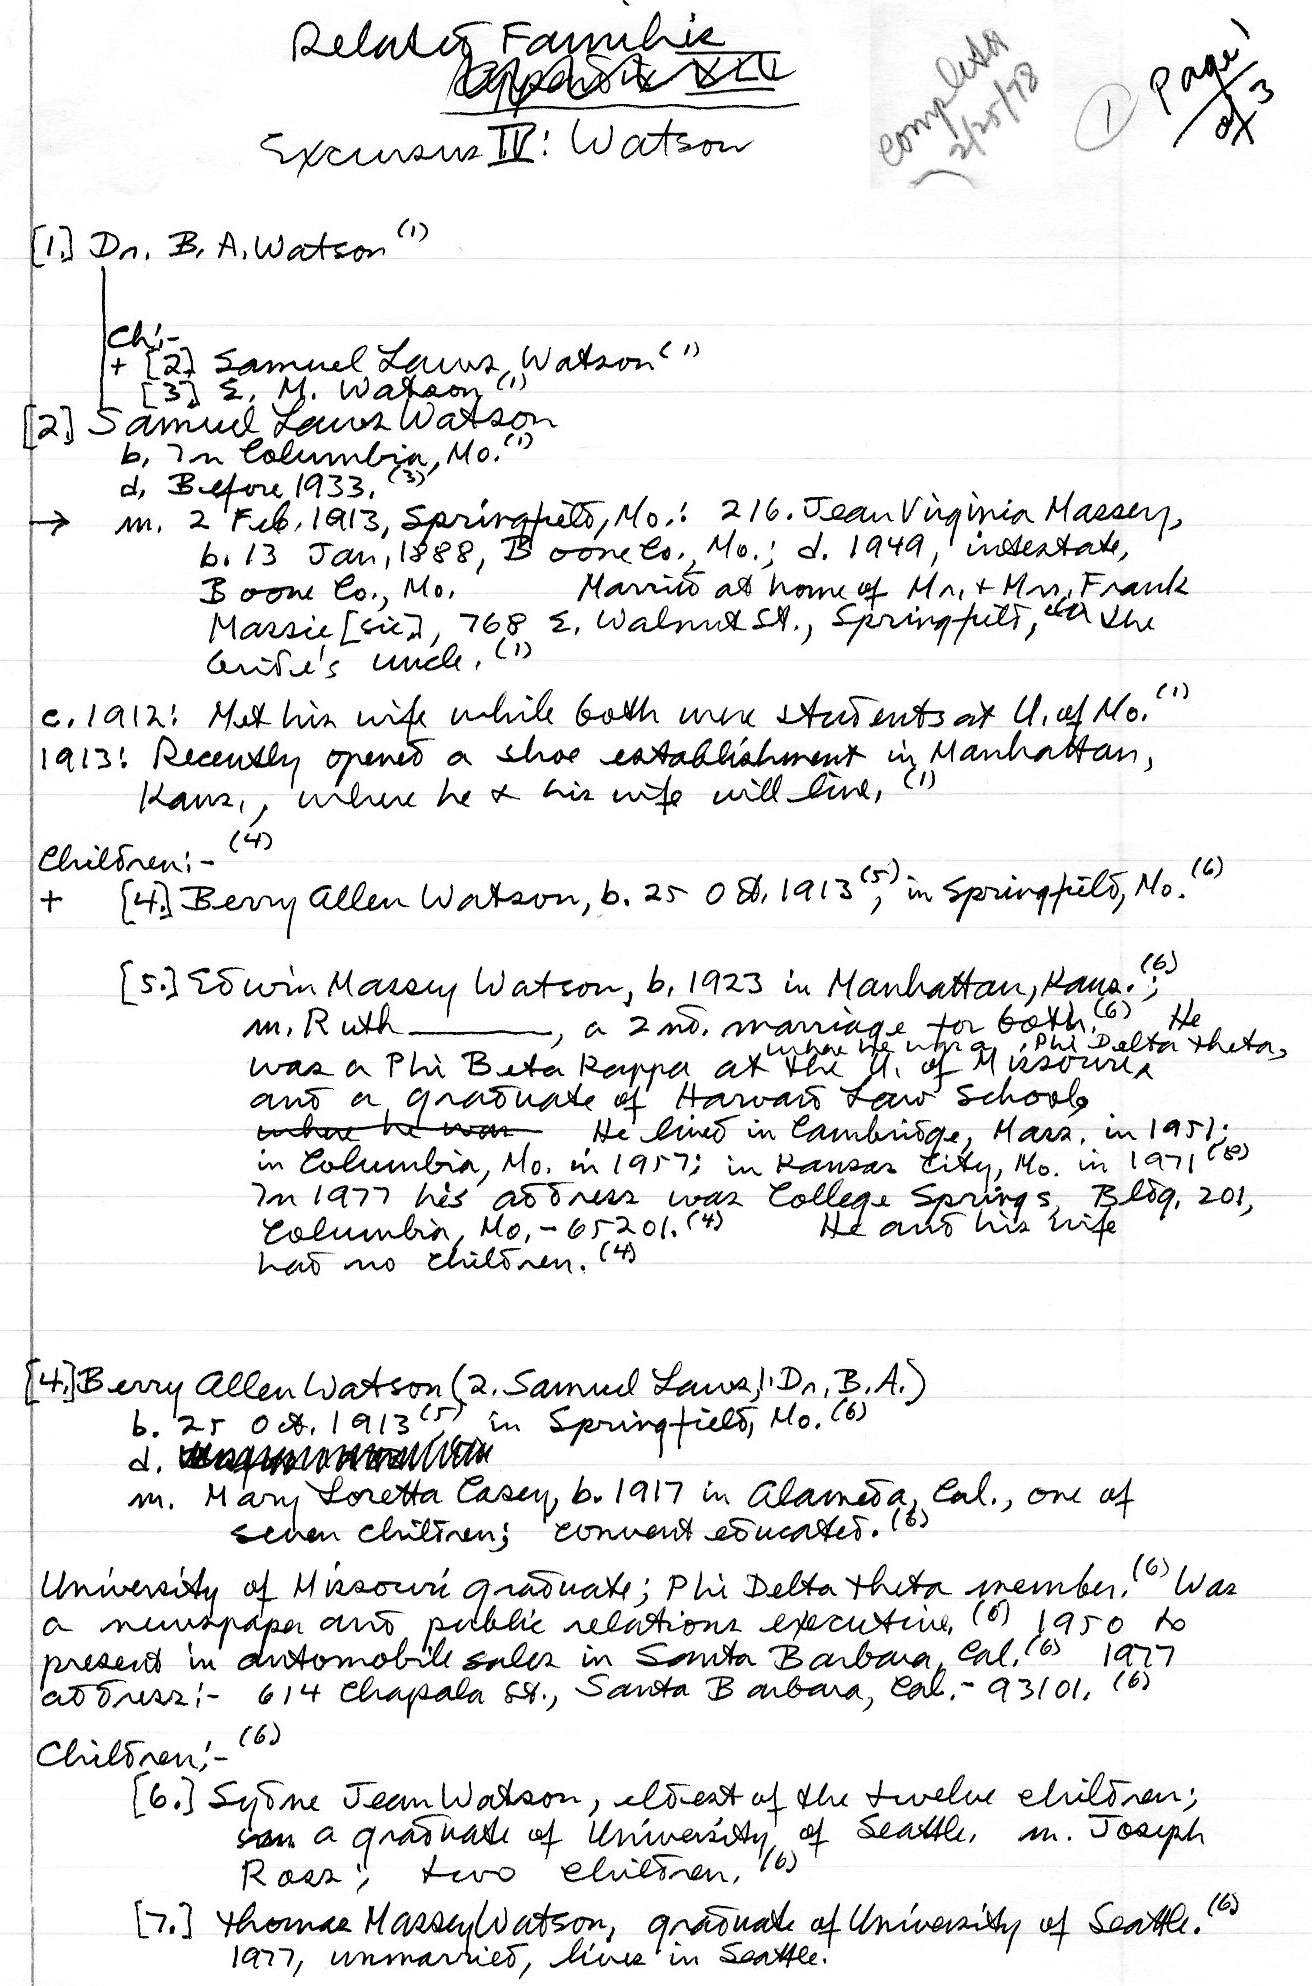 Related Families
Appendix XII
Excursus IV: Watson
completed
2/25/78
1
Page 1
of 3
[1.] Dr. B. A. Watson (1)
Ch:-
+ [2] Samuel Laws Watson (1)
[3] E. M. Watson (1)
[2.] Samuel Laws Watson
b. In Columbia, Mo. (1)
d. Before 1933. (3)
→ m. 2 Feb. 1913, Springfield, Mo.: 216. Jean Virginia Massey,
b. 13 Jan, 1888, Boone Co., Mo.; d. 1949, intestate,
Boone Co., Mo. Married at home of Mr. + Mrs. Frank
Massie [sic], 768 E. Walnut St., Springfield, the
bride's uncle. (1)
c. 1912: Met his wife while both were students at U. of Mo. (1)
1913: Recently opened a shoe establishment in Manhattan,
Kans., where he & his wife will live. (1)
Children:- (4)
+ [4.] Berry Allen Watson, b. 25 Oct. 1913 (5), in Springfield, Mo. (6)
[5.] Edwin Massey Watson, b. 1923 in Manhattan, Kans. (6);
m. Ruth ______, a 2nd. marriage for both. (6) He
where he was a Phi Delta Theta,
was a Phi Beta Kappa at the U. of Missouri
and a graduate of Harvard Law School.
where he was He lived in Cambridge, Mass. in 1951;
in Columbia, Mo. in 1957; in Kansas City, Mo. in 1971 (8)
In 1977 his address was College Springs, Bldg. 201,
Columbia, Mo. - 65201. (4) He and his wife
had no children. (4)
[4.] Berry Allen Watson (2. Samuel Laws, 1. Dr. B. A.)
b. 25 Oct. 1913 (5) in Springfield, Mo. (6)
d.
m. Mary Loretta Casey, b. 1917 in Alameda, Cal., one of
seven children; convent educated. (6)
University of Missouri graduate; Phi Delta Theta member. (6) Was
a newspaper and public relations executive. (6) 1950 to
present in automobile sales in Santa Barbara, Cal. (6) 1977
address:- 614 Chapala St., Santa Barbara, Cal. - 93101. (6)
Children:- (6)
[6.] Sydne Jean Watson, eldest of the twelve children;
a graduate of University of Seattle. m. Joseph
Ross; two children. (6)
[7.] Thomas Massey Watson, graduate of University of Seattle. (6)
1977, unmarried, lives in Seattle.